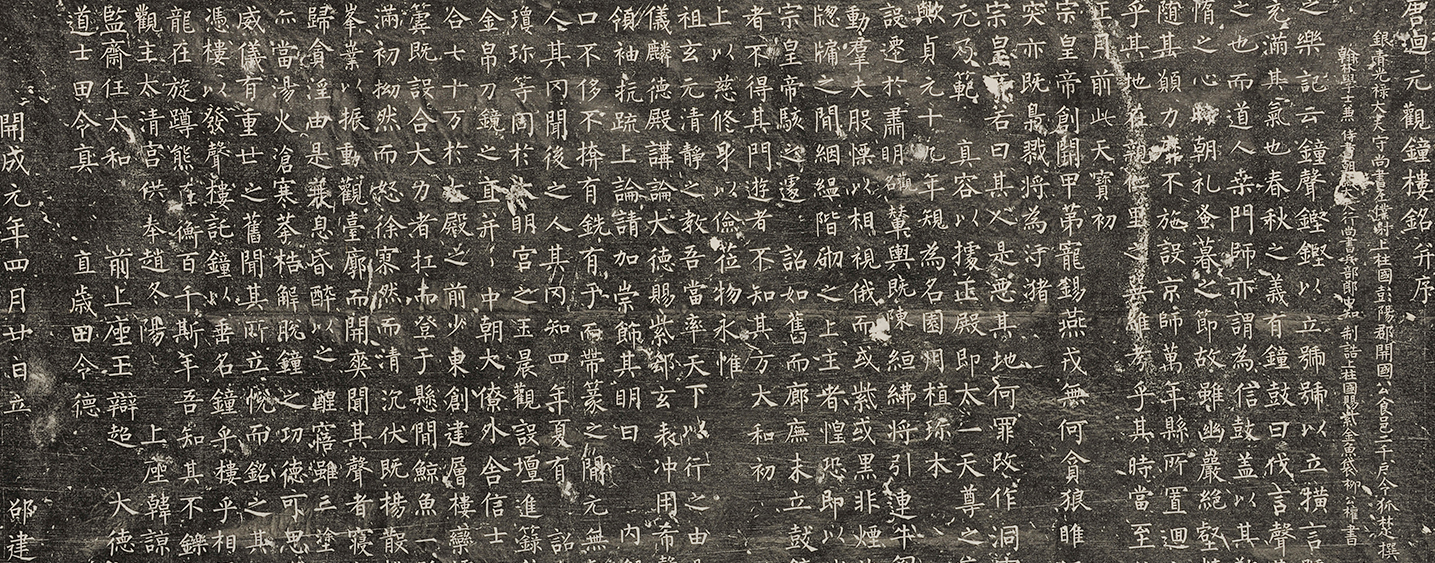 唐迴元觀鐘樓銘并序
銀青光祿大夫守尚書左僕射上柱國彭陽郡開國公食邑二千戶令狐楚撰
翰林學士兼侍書朝議大夫行尚書兵部郎中知制誥上柱國賜紫金魚袋柳公權書
之樂記云鐘聲鏗鏗以立號號以立橫言
充滿其氣也春秋之義有鐘鼓曰伐言聲
之也而道人桒門師亦謂為信鼓盖以其
惰之心時朝礼蚤暮之節故雖幽巖絕壑
隨其願力靡不施設京師萬年縣所置迴
乎其地在親仁里之巽維考乎其時當至
正月前此天寶初
宗皇帝創開甲第寵錫燕戎無何貪狼睢
突亦既梟戮將為汙瀦
宗皇帝若曰其人是惡其地何罪改作洞
元及範 真容以據正殿即太一天尊之
歟貞元十九年規為名園用植珎木
設遷於肅明觀輦輿既陳縆紼將引連牛
動羣夫股慄以相視俄而或紫或黑非煙
牕牖之間絪縕階砌之上主者惶恐即以
宗皇帝駭之遽 詔如舊而廊廡未立鼓
者不得其門遊者不知其方大和初
上以慈修身以儉莅物永惟
祖玄元清靜之教吾當率天下以行之由
儀麟德殿講論大德賜紫鄒玄表冲用希
領袖抗疏上論請加崇飾其明日 內
口不侈不揜有銑有于而帶篆之間元無
人其罔聞後之人其罔知四年夏有 詔
瓊珎等同於大明宮之玉晨觀設壇進籙
金帛刀鏡之直并中朝大僚外舍信士
合七十万於大殿之前少東創建層樓欒
簨既設合大力者扛而登于懸間鯨魚一
滿初拗然而怒徐寥然而清沉伏既揚散
峯業以振動觀臺廓而開爽聞其聲者寢
歸貪淫由是衰息昏醉以之醒寤雖三塗
亦當湯火滄寒拲梏解脫鐘之功德可思
威儀有重世之舊聞其所立悅而銘之其
憑樓以發聲樓託鐘以垂名鐘乎樓乎相
龍在旋蹲熊在衡百千斯年吾知其不鑠
觀主太清宮供奉趙冬陽 上座韓諒
監齋任太和 前上座王辯超 大德
道士田令真 直歲田令德
開成元年四月廿日立 邵建